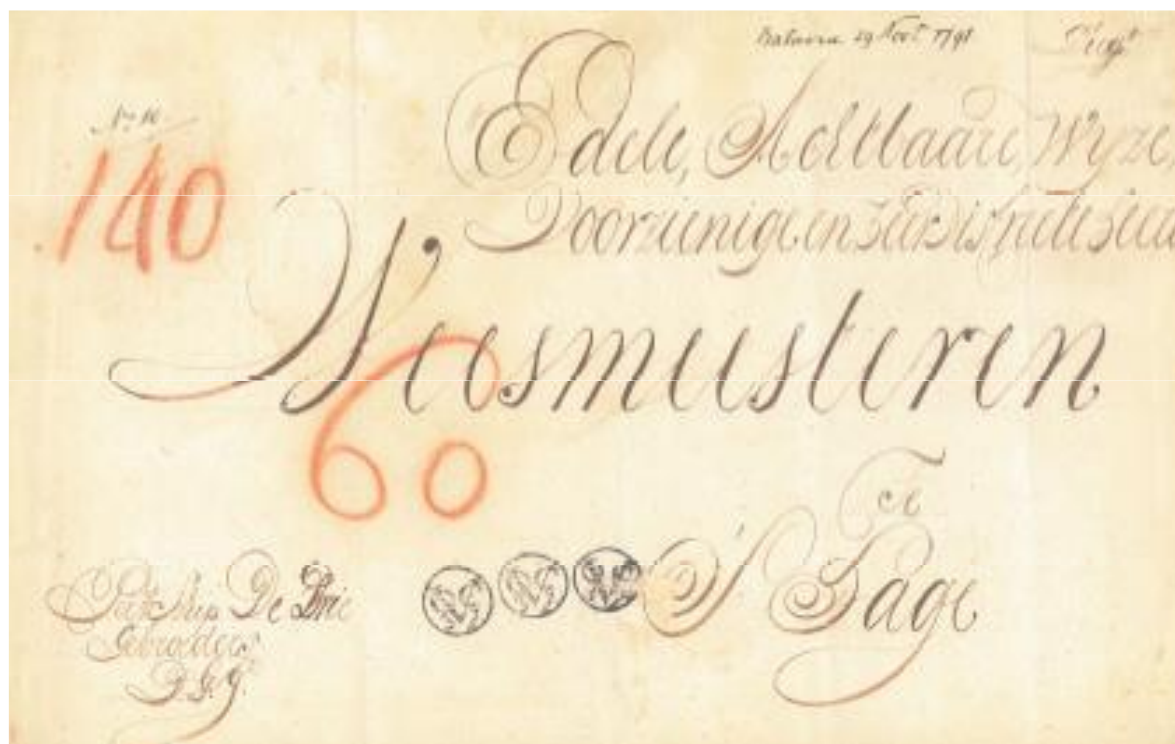 Batavia 29 Nov 1791
No 10
140
Edele, Achtbaare, Wyze,
Voorzienige en zeer discrete heeren
Weesmeesteren
60
Te
S Hage
De Drie
Gebroeders